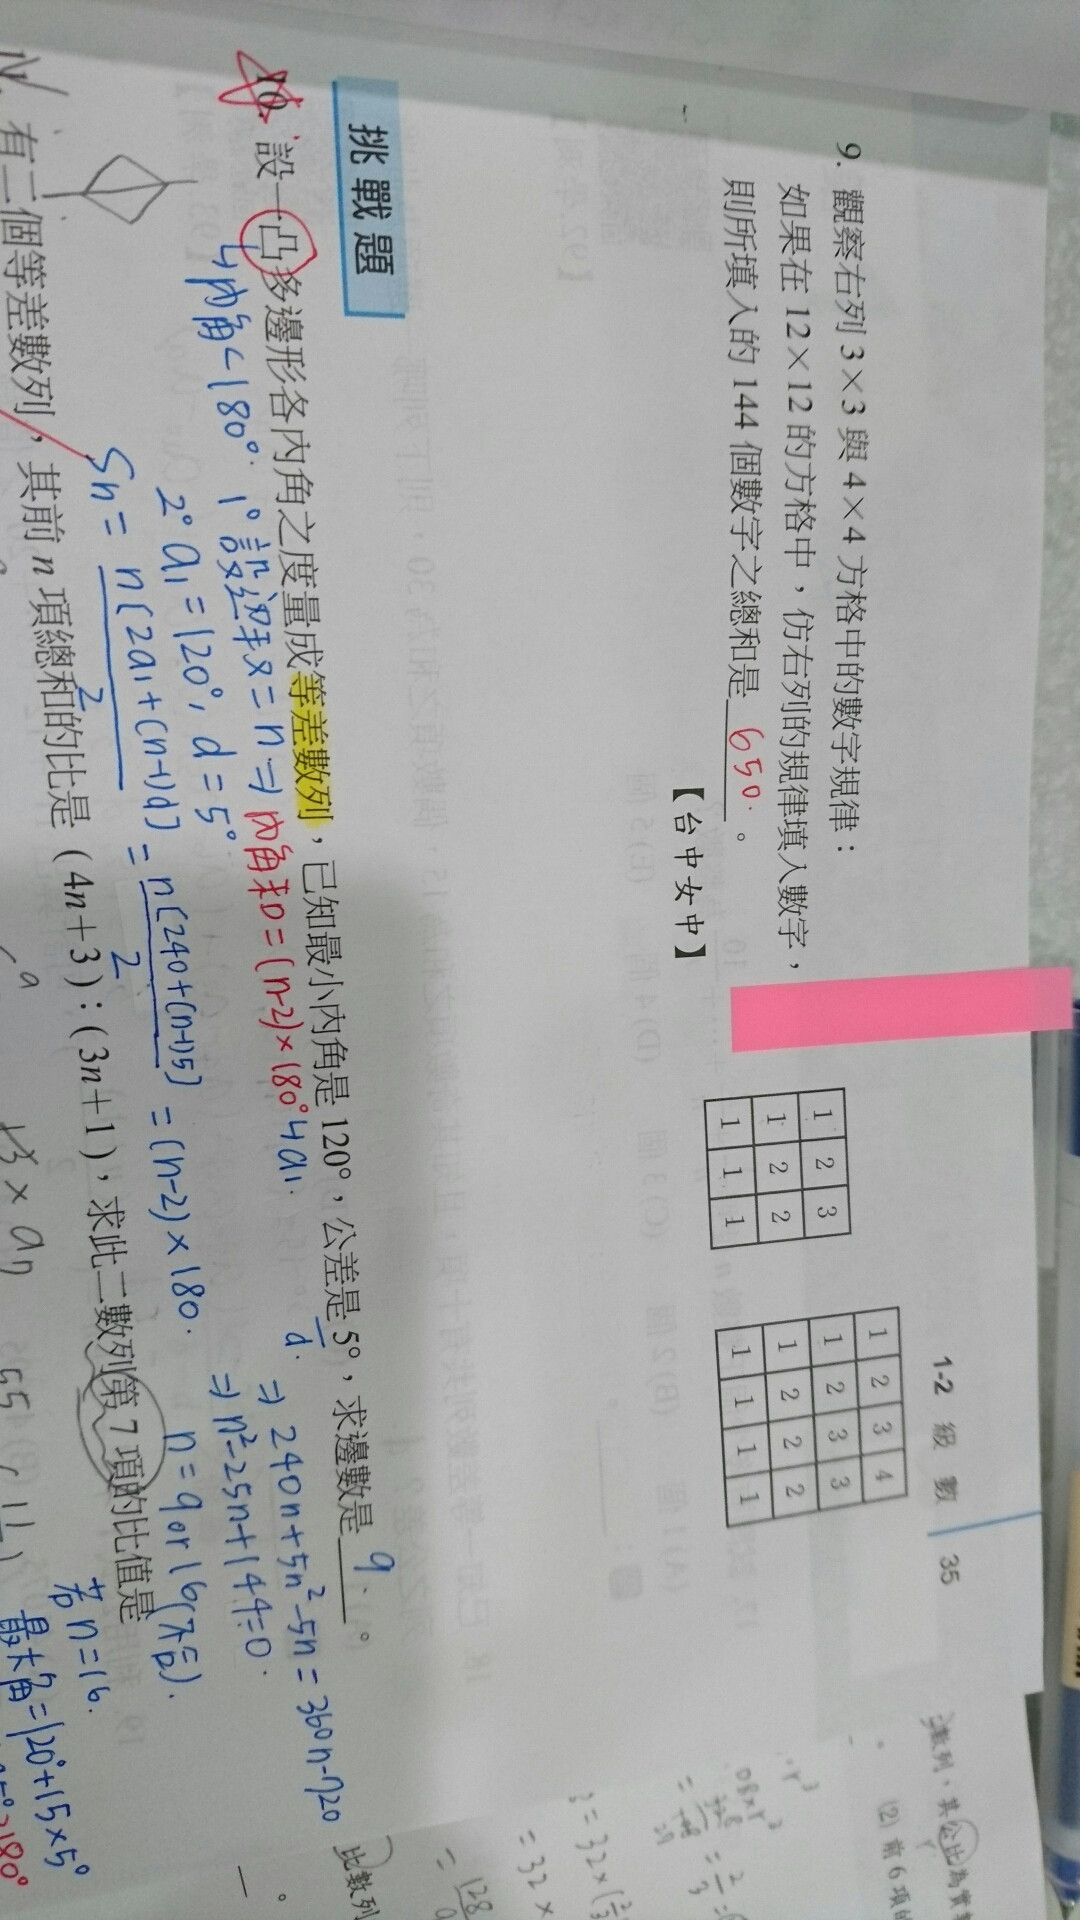 1-2 級數 35
9. 觀察右列 3×3 與 4×4 方格中的數字規律：
如果在 12×12 的方格中，仿右列的規律填入數字，
則所填入的 144 個數字之總和是 650. 。
【台中女中】
1 2 3
1 2 2
1 1 1
1 2 3 4
1 2 3 3
1 2 2 2
1 1 1 1
挑戰題
10. 設一凸多邊形各內角之度量成等差數列，已知最小內角是 120°，公差是 5°，求邊數是 9. 。
a1.
d.
內角<180°.
1° 設邊數=n ⇒ 內角和=(n-2)×180°
2° a1=120°, d=5°
Sn= n[2a1+(n-1)d] / 2 = n[240+(n-1)5] / 2 =(n-2)×180.
⇒ 240n+5n²-5n=360n-720
⇒ n²-25n+144=0.
n=9 or 16(不合).
若n=16.
最大角=120°+15×5°
>180°
有二個等差數列，其前 n 項總和的比是 (4n+3)：(3n+1)，求此二數列第 7 項的比值是
。
數列，其公比為實
(2) 前 6 項
比數列